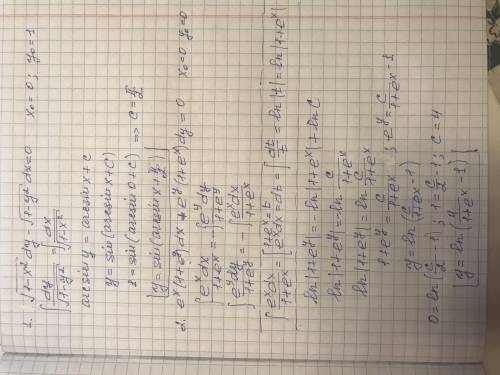 1. √1-x² dy - √1-y² dx=0 x₀=0; y₀=1
∫ dy/√1-y² = ∫ dx/√1-x²
arcsin y = arcsin x + c
y = sin(arcsin x + C)
1 = sin(arcsin 0 + C) => C = π/2
[y = sin(arcsin x + π/2)]
2. eˣ(1+eʸ)dx + eʸ(1+eˣ)dy = 0 x₀=0 y₀=0
∫ eˣdx/1+eˣ = -∫ eʸdy/1+eʸ
∫ eʸdy/1+eʸ = -∫ eˣdx/1+eˣ
∫ eˣdx/1+eˣ = [1+eˣ=t eˣdx=dt] = ∫ dt/t = ln|t| = ln|1+eˣ|
ln|1+eʸ| = -ln|1+eˣ| + ln C
ln|1+eʸ| = ln C/1+eˣ
ln|1+eʸ| = ln C/1+eˣ
1+eʸ = C/1+eˣ ; eʸ = C/1+eˣ - 1
y = ln(C/1+eˣ - 1)
0 = ln(C/2 - 1) ; 1 = C/2 - 1 ; C = 4
[y = ln(4/1+eˣ - 1)]